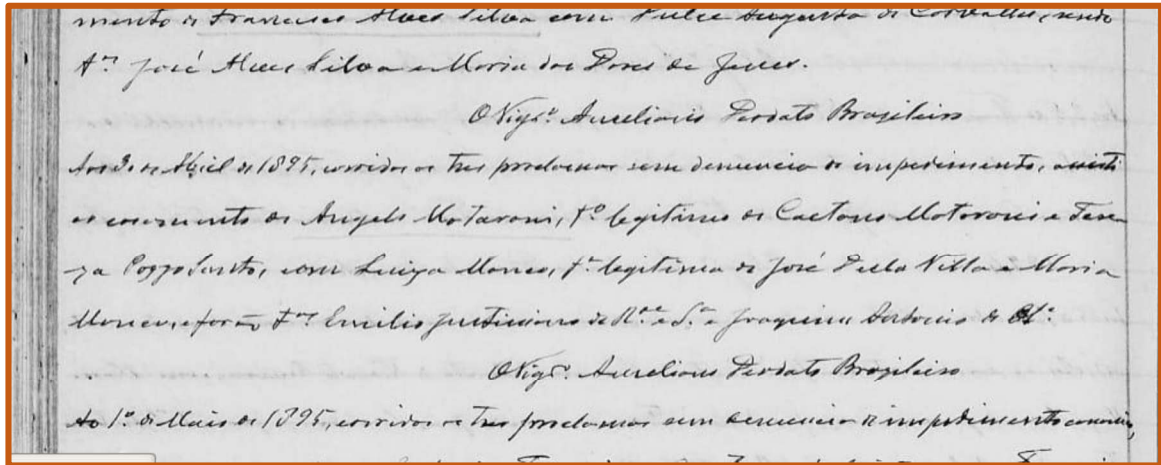 mento de Francisco Alves Silva com Dulce Augusta de Carvalho, sendo
Tas José Alves Silva e Maria das Dores de Jesus.
O Vigro Aureliano Deodato Brasileiro
Aos 3 de Abril de 1895, corridos os tres proclamas sem denuncia de impedimento, assisti
ao casamento de Angelo Mataroni, fo legitimo de Caetano Mataroni e There
za Pozzo Santo, com Luiza Monea, fa legitima de José Della Villa e Maria
Monea, e forão Tas Emilio Justiniano de e Sa e Joaquim Antonio de
O Vigro Aureliano Deodato Brasileiro
Ao 1o de Maio de 1895, corridos os tres proclamas sem denuncia de impedimento